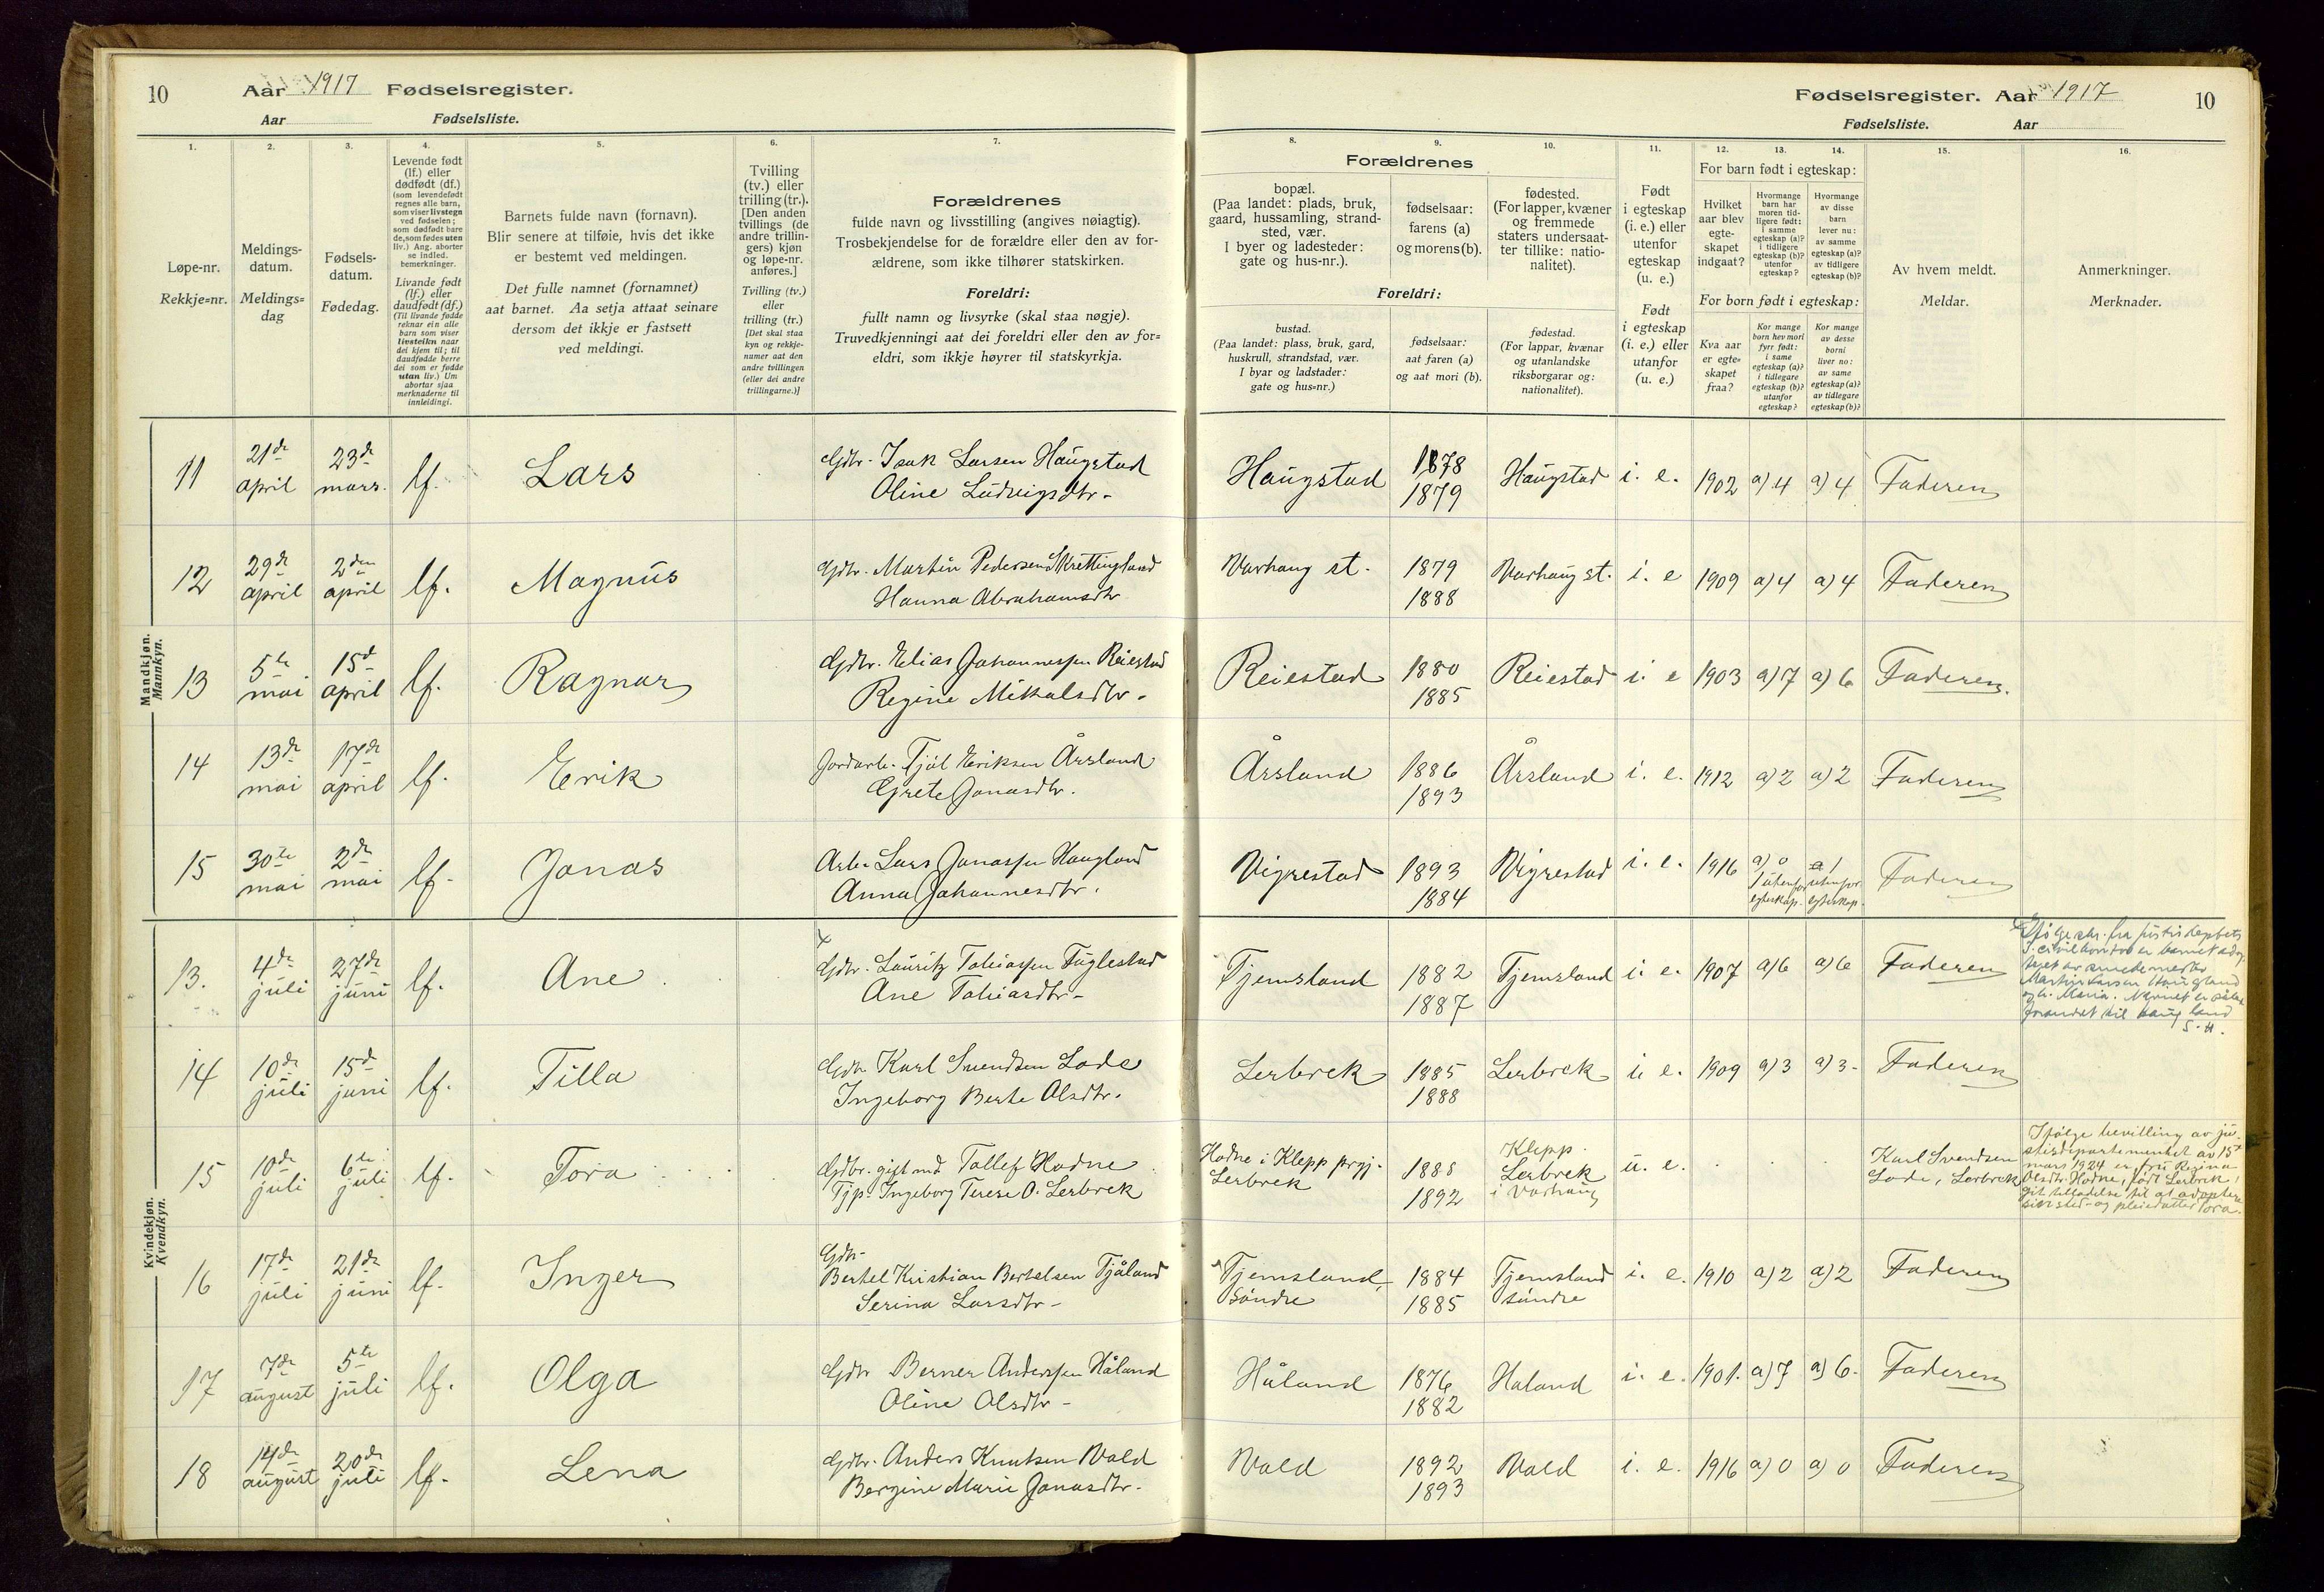 10
Aar 1917 Fødselsregister.
Aar Fødselsliste.
1.
Løpe-nr.
Rekkje=nr.
2.
Meldings-
datum.
Meldings=
dag
3.
Fødsels-
datum.
Fødedag.
4.
Levende født
(lf.) eller
dødfødt (df.)
(som levendefødt
regnes alle barn,
som viser livstegn
ved fødselen;
som dødfødt bare
de, som fødes uten
liv.) Ang. aborter
se indled.
bemerkninger.
Livande født
(lf.) eller
daudfødt (df.)
(Til livande fødde
reknar ein alle
barn som viser
livsteikn naar
dei kjem til; til
daudfødde berre
dei som er fødde
utan liv.) Um
abortar sjaa
merknaderne til
innleidingi.
5.
Barnets fulde navn (fornavn).
Blir senere at tilføie, hvis det ikke
er bestemt ved meldingen.
Det fulle namnet (fornamnet)
aat barnet. Aa setja attaat seinare
dersom det ikkje er fastsett
ved meldingi.
6.
Tvilling
(tv.) eller
trilling (tr.).
[Den anden
tvillings (de
andre trillin-
gers) kjøn
og løpe-nr.
anføres.]
Tvilling (tv.)
eller
trilling (tr.)
[Det skal staa
kyn og rekkje-
numer aat den
andre tvillingen
(eller dei andre
trillingarne.)]
7.
Forældrenes
fulde navn og livsstilling (angives nøiagtig).
Trosbekjendelse for de forældre eller den av for-
ældrene, som ikke tilhører statskirken.
Foreldri:
fullt namn og livsyrke (skal staa nøgje).
Truvedkjenningi aat dei foreldri eller den av for=
eldri, som ikkje høyrer til statskyrkja.
Mandkjøn.
Mannkyn.
11
21de
april
23de
mars.
lf.
Lars
Gdbr. Isak Larsen Haugstad
Oline Ludvigsdtr.
12
29de
april
2den
april
lf.
Magnus
Gdbr. Martin Pedersen Skrettingland
Hanna Abrahamsdtr
13
5te
mai
15de
april
lf.
Ragnar
Gdbr. Elias Johannessen Reiestad
Regine Mikalsdtr.
14
13de
mai
17de
april
lf.
Erik
Jordarb. Tjøl Eriksen Årsland
Grete Jonasdtr.
15
30te
mai
2den
mai
lf.
Jonas
Arb. Lars Jonassen Haugland
Anna Johannesdtr.
Kvindekjøn.
Kvendkyn.
13.
4de
juli
27de
juni
lf.
Ane
x
Gdbr. Lauritz Tobiassen Fuglestad
Ane Tobiasdtr.
14
10de
juli
15de
juni
lf.
Tilla
Gdbr Karl Svendsen Lode
Ingeborg Berte Olsdtr.
15
10de
juli
6te
juli
lf.
Tora
Gdbr. gift md. Tollef Hodne
Tjp. Ingeborg Terese O. Lerbrek
16
17de
juli
21de
juni
lf.
Inger
Gdbr.
Bertel Kristian Bertelsen Tjåland
Serina Larsdtr.
17
7de
august
5te
juli
lf.
Olga
Gdbr Berner Anderssen Håland
Oline Olsdtr.
18
14de
august
20de
juli
lf.
Lena
Gdbr. Anders Knutsen Vold
Bergine Marie Jonasdtr.
Fødselsregister. Aar 1917
10
Fødselsliste. Aar
8.
Forældrenes
bopæl.
(Paa landet: plads, bruk,
gaard, hussamling, strand-
sted, vær.
I byer og ladesteder:
gate og hus-nr.).
Foreldri:
bustad.
(Paa landet: plass, bruk, gard,
huskrull, strandstad, vær.
I byar og ladstader:
gate og hus=nr.)
9.
fødselsaar:
farens (a)
og morens (b).
fødselsaar:
aat faren (a)
og aat mori (b).
10.
fødested.
(For lapper, kvæner
og fremmede
staters undersaat-
ter tillike: natio-
nalitet).
fødestad.
(For lappar, kvænar
og utanlandske
riksborgarar og:
nationalitet).
11.
Født
i egteskap
(i. e.) eller
utenfor
egteskap
(u. e.)
Født
i egteskap
(i. e.) eller
utanfor
(u. e.)
12.
For barn født i egteskap:
Hvilket
aar blev
egte-
skapet
indgaat?
For born født i egteskap:
Kva aar
er egte=
skapet
fraa?
13.
Hvormange
barn har
moren tid-
ligere født:
i samme
egteskap (a)?
i tidligere
egteskap (b)?
utenfor
egteskap?
Kor mange
born hev mori
fyrr født:
i same
egteskap (a)?
i tidlegare
egteskap (b)?
utanfor
egteskap?
14.
Hvormange
av disse
barn
lever nu:
av samme
egteskap (a)?
av tidligere
egteskap (b)?
Kor mange
av desse
borni
liver no:
av same
egteskap (a)?
av tidlegare
egteskap (b)?
15.
Av hvem meldt.
Meldar.
16.
Anmerkninger.
Merknader.
Haugstad
1878
1879
Haugstad
i. e.
1902
a) 4
a) 4
Faderen
Varhaug st.
1879
1888
Varhaug st.
i. e
1909
a) 4
a) 4
Faderen
Reiestad
1880
1885
Reiestad
i. e
1903
a) 7
a) 6
Faderen.
Årsland
1886
1893
Årsland
i. e.
1912
a) 2
a) 2
Faderen
Vigrestad
1893
1884
Vigrestad
i. e.
1916
a) 0
1 utenfor
egteskap.
a) 1
utenfor
egteskap.
Faderen
Tjemsland
1882
1887
Tjemsland
i. e.
1907
a) 6
a) 6
Faderen
Ifølge skr. fra justisdeptets
civilkontor er barnet adop-
teret av
Martin Larsen Haugland
og h. Maria. Navnet er
forandret til Haugland
S. H.
Lerbrek
1885
1888
Lerbrek
i. e.
1909
a) 3
a) 3
Faderen
Hodne i Klepp prgj.
Lerbrek
1885
1892
Klepp.
Lerbrek
i Varhaug
u. e.
Karl Svendsen
Lode, Lerbrek
Ifølge bevilling av ju-
stisdepartementet av 15de
mars 1924 er fru Regina
Olsdtr. Hodne, født Lerbrek,
git tilladelse til at adoptere
sin sted- og pleiedatter Tora.
Tjemsland,
søndre
1884
1885
Tjemsland
søndre
i. e.
1910
a) 2
a) 2
Faderen
Håland
1876
1882
Håland
i. e.
1901.
a) 7
a) 6.
Faderen
Vold
1892
1893
Vold
i. e.
1916
a) 0
a) 0
Faderen